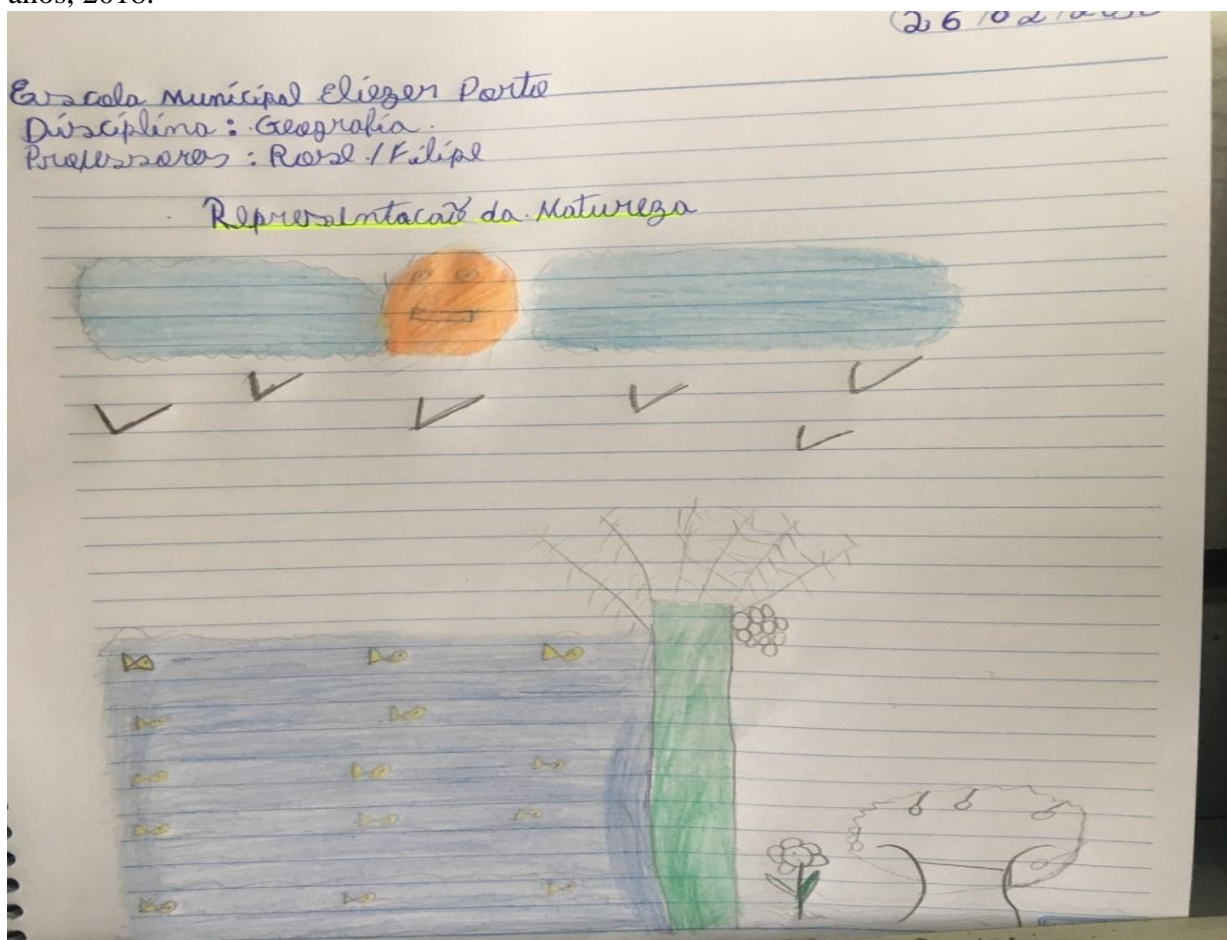 anos, 2018.
Escola Municipal Eliezer Porto
Disciplina: Geografia.
Professores: Rose / Filipe
Representacaõ da Natureza